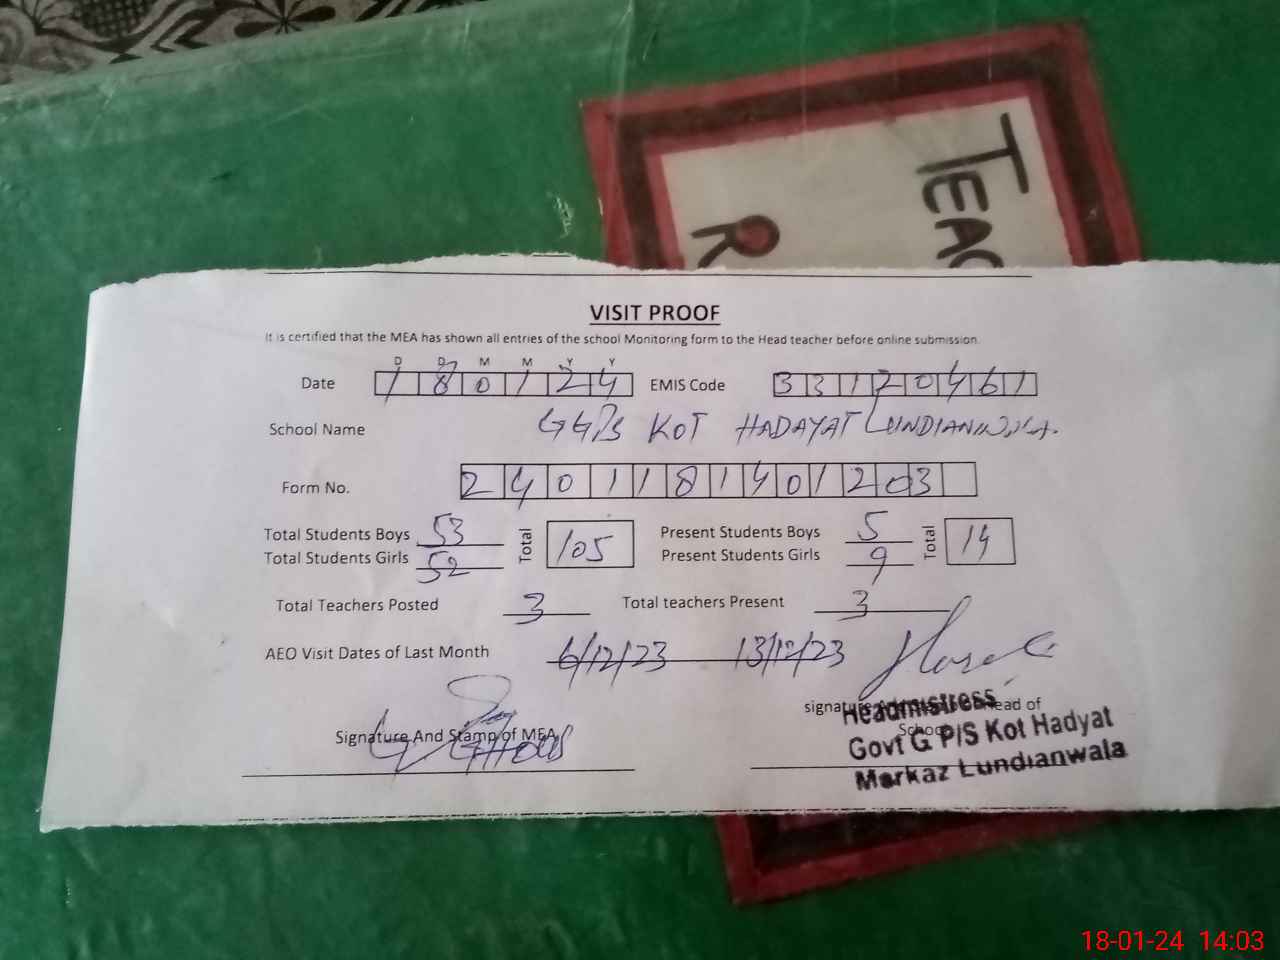 TEAC
R
VISIT PROOF
It is certified that the MEA has shown all entries of the school Monitoring form to the Head teacher before online submission.
D D M M Y Y
Date 1 8 0 1 2 4 EMIS Code 3 3 1 2 0 4 6 1
School Name GGP/S KOT HADAYAT LUNDIANWALA.
Form No. 2 4 0 1 1 8 1 4 0 1 2 0 3
Total Students Boys 53 Total 105 Present Students Boys 5 Total 14
Total Students Girls 52 Present Students Girls 9
Total Teachers Posted 3 Total teachers Present 3
AEO Visit Dates of Last Month 6/12/23 13/12/23
signature Head of
School
Signature And Stamp of MEA
Headmistress
Govt G P/S Kot Hadyat
Markaz Lundianwala
18-01-24 14:03